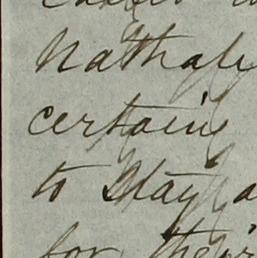 Nathal
certain
to stay a
for their